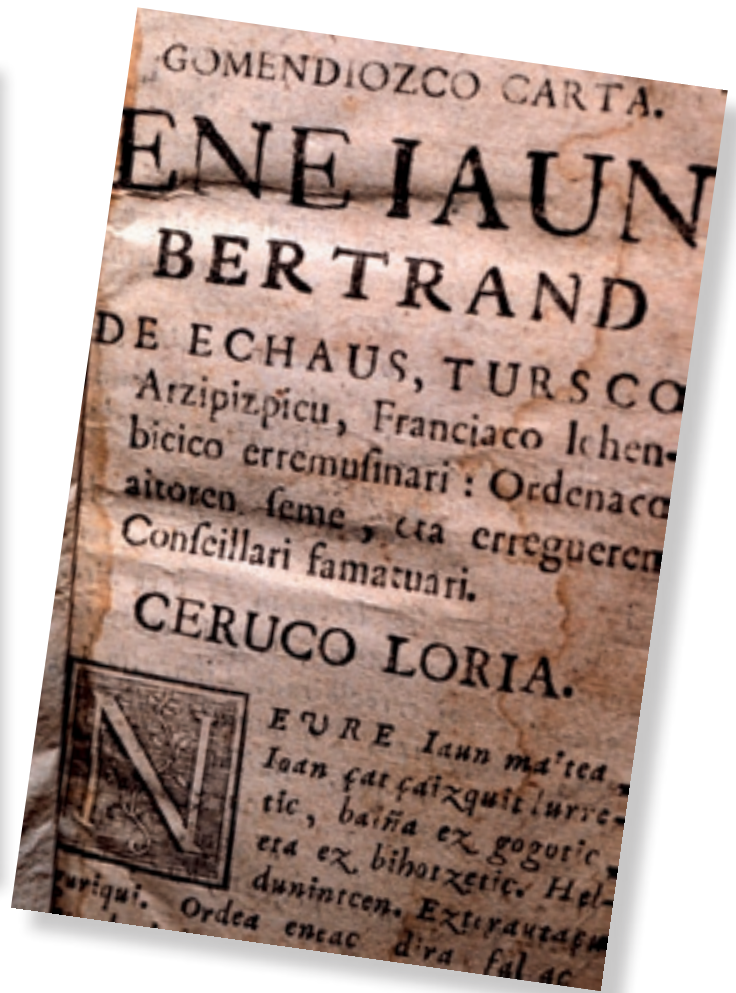 GOMENDIOZCO CARTA.
ENE IAUN
BERTRAND
DE ECHAUS, TURSCO
Arzipizpicu, Franciaco Ichen-
bicico erremuſinari : Ordenaco
aitoren ſeme, eta erregueren
Conſeillari famatuari.
CERUCO LORIA.
NEURE Iaun maitea,
Ioan çat çaizquit lurre-
tic, baiña ez gogotic,
eta ez bihotzetic. Hel-
dunintcen. Ezterautaçu
Ordea entac dira fal